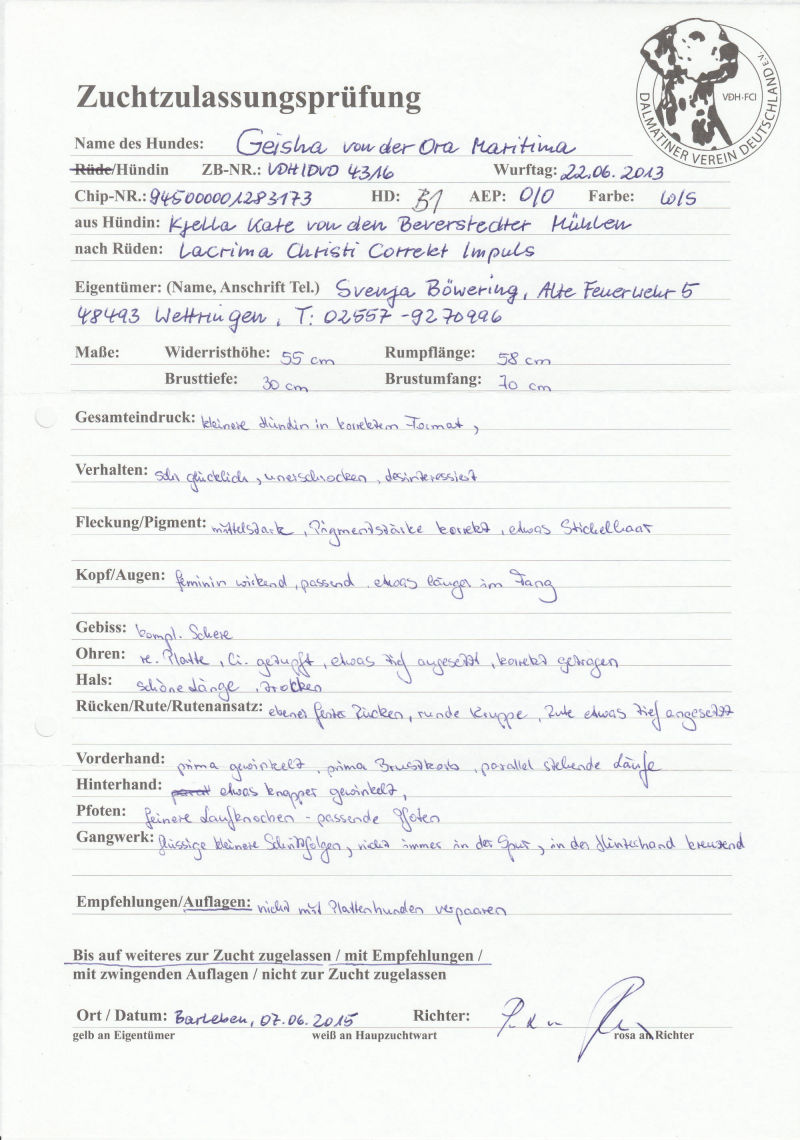 Zuchtzulassungsprüfung
VDH-FCI
DALMATINER VEREIN DEUTSCHLAND E.V.
Name des Hundes: Geisha von der Ora Maritima
Rüde/Hündin ZB-NR.: VDH/DVD 4316 Wurftag: 22.06.2013
Chip-NR.: 945000001283173 HD: B1 AEP: 0/0 Farbe: w/s
aus Hündin: Kjella Kate von den Beverstedter Mühlen
nach Rüden: Lacrima Christi Correkt Impuls
Eigentümer: (Name, Anschrift Tel.) Svenja Böwering, Alte Feuerwehr 5
48493 Wettringen, T: 02557-9270996
Maße: Widerristhöhe: 55 cm Rumpflänge: 58 cm
Brusttiefe: 30 cm Brustumfang: 70 cm
Gesamteindruck: kleinere Hündin in korrektem Format,
Verhalten: sehr glücklich, unerschrocken, desinteressiert
Fleckung/Pigment: mittelstark, Pigmentstärke korrekt, etwas Stichelhaar
Kopf/Augen: feminin wirkend, passend, etwas länger im Fang
Gebiss: kompl. Schere
Ohren: re. Platte, li. getupft, etwas tief angesetzt, korrekt getragen
Hals: schöne Länge, trocken
Rücken/Rute/Rutenansatz: ebener fester Rücken, runde Kruppe, Rute etwas tief angesetzt
Vorderhand: prima gewinkelt, prima Brustkorb, parallel stehende Läufe
Hinterhand: etwas knapper gewinkelt,
Pfoten: feinere Laufknochen - passende Pfoten
Gangwerk: flüssige kleinere Schrittfolgen, nicht immer in der Spur, in der Hinterhand kreuzend
Empfehlungen/Auflagen: nicht mit Plattenhunden verpaaren
Bis auf weiteres zur Zucht zugelassen / mit Empfehlungen /
mit zwingenden Auflagen / nicht zur Zucht zugelassen
Ort / Datum: Barleben, 07.06.2015 Richter:
gelb an Eigentümer weiß an Haupzuchtwart rosa an Richter